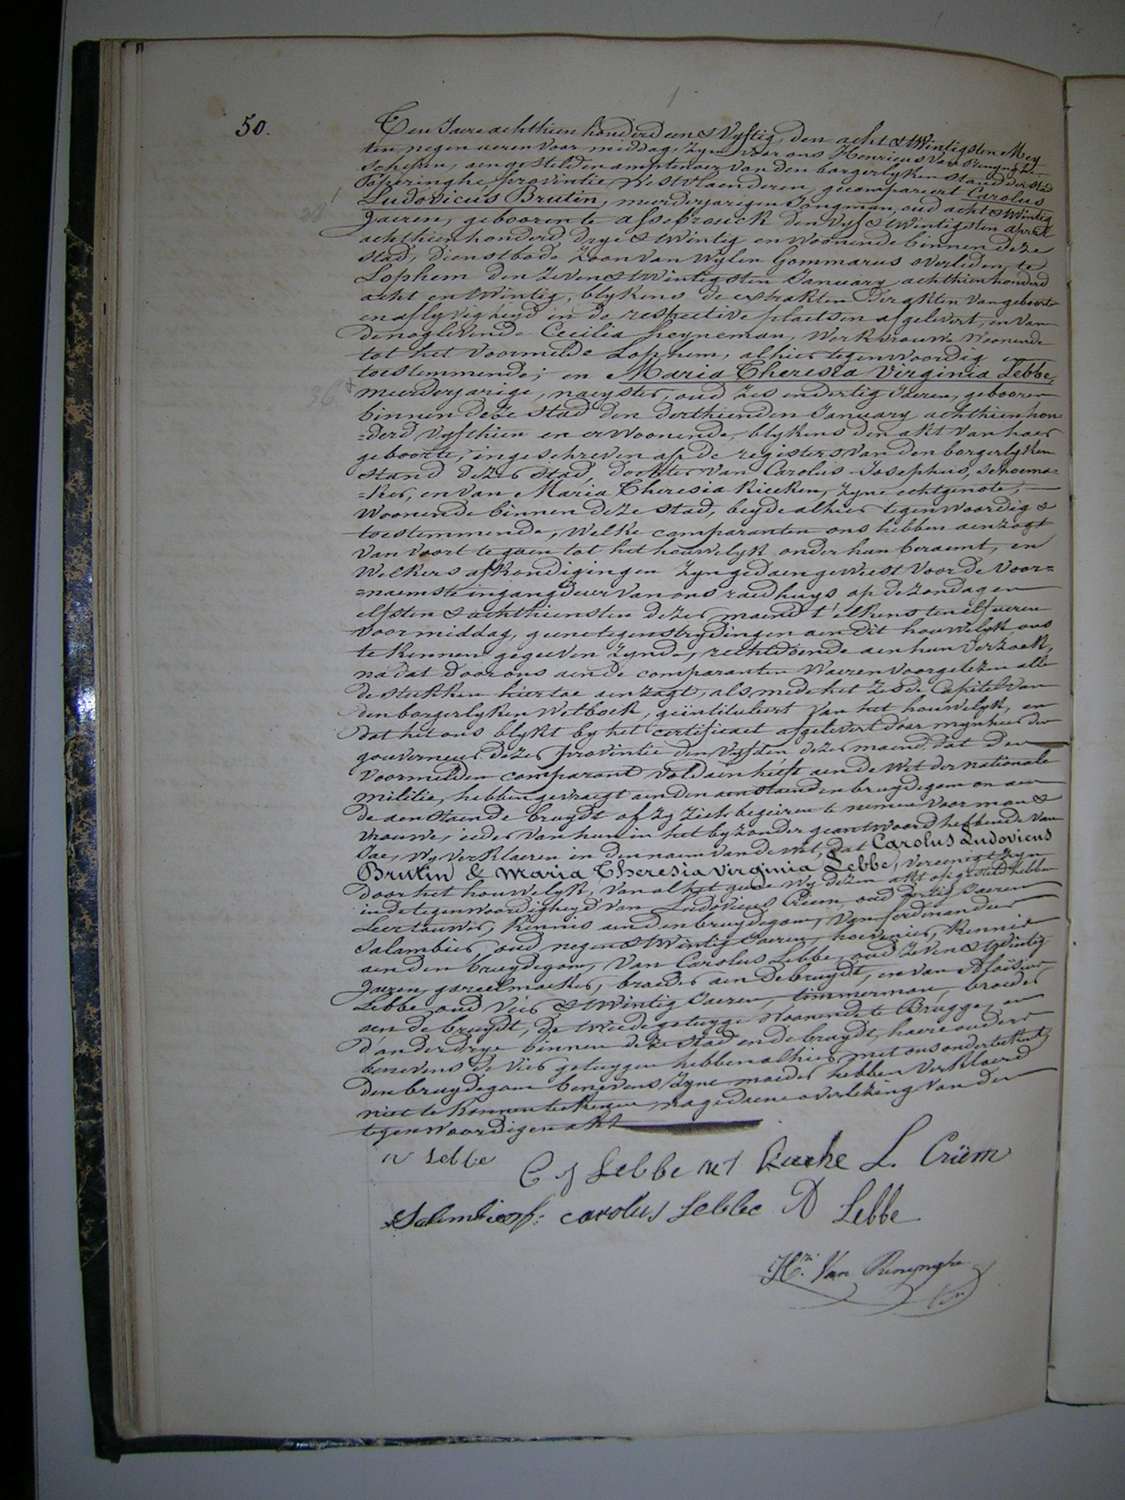 50.
Ten Jaere achthien honderd een & Vyftig, den acht & twintigsten Mey
ten negen ueren voor middag, zyn voor ons Henricus Van Renynghe
schepen, aengestelden amptenaer van den borgerlyken stand der stad
Poperinghe, provintie Westvlaenderen, gecompareert Carolus
Ludovicus Brutin, meerderjarigen Jongman, oud acht & twintig
Jaeren, geboren te Assebrouck den vyf & twintigsten april
achthien honderd drye & twintig en woonende binnen deze
stad, dienstbode zoon van wylen Gommarus overleden te
Lophem den zeven & twintigsten January achthien honderd
acht en twintig, blykens de extrakten der akten van geboorte
en aflyvigheyd in de respective plaetsen afgelevert, en van
de noglevende Cecilia Heyneman, werkvrouwe woonende
tot het voormelde Lophem, alhier tegenwoordig en
toestemmende; en Maria Theresia Virginia Lebbe,
meerderjarige, naeyster, oud zes en dertig Jaeren, geboren
binnen deze stad den derthienden January achthien hon
=derd vyfthien en er woonende, blykens den akt van haer
geboorte, ingeschreven op de registers van den borgerlyken
stand dezer stad, dochter van Carolus Josephus, schoenma=
=ker, en van Maria Theresia Rieeken, zyne echtgenote,
woonende binnen deze stad, beyde alhier tegenwoordig &
toestemmende, welke comparanten ons hebben aenzogt
van voort te gaen tot het houwelyk onder hun beraemt, en
welkers afkondigingen zyn gedaen geweest voor de voor=
=naemste ingangdeur van ons raedhuys op de zondagen
elfsten & achthiensten dezer maend t'elkens ten elf ueren
voormiddag, geene tegenstrydingen aen dit houwelyk ons
te kennen gegeven zynde, rechtdoende aen hun verzoek,
na dat door ons aen de comparanten waeren voorgelezen alle
de stukken hiertoe aenzogt, als mede het zesde Capitel van
den borgerlyken wetboek, geïntituleert van het houwelyk, en
dat het ons blykt by het certificaet afgelevert door mynheer den
gouverneur dezer provintie den vyfden dezer maend, dat den
voormelden comparant voldaen heeft aen de wet der nationale
militie, hebben gevraegt aen den aenstaenden bruydegom en aen
de aenstaende bruydt of zy zich begeiren te nemen voor man &
vrouwe, ieder van hun in het byzonder geantwoord hebbende van
Jae, wy verklaeren in den naem van de wet, dat Carolus Ludovicus
Brutin & Maria Theresia Virginia Lebbe, vereenigt zyn
door het houwelyk, van al het gene wy dezen akt opgesteld hebben
in de tegenwoordigheyd van Ludovicus Crüm, oud Jaeren
Leertouwer, kennis aen den bruydegom, van Ferdinandus
Salambier oud negen & twintig Jaeren, hovenier, kennis
aen den bruydegom, van Carolus Lebbe, oud zeven & twintig
Jaeren, gareelmaeker, broeder aen de bruydt, en van Aloïsius
Lebbe oud vier & twintig Jaeren, timmerman, broeder
aen de bruydt, de tweede getuyge woonende te Brugge, en
d'ander drye binnen deze stad en de bruydt, haere ouders
benevens de vier getuygen hebben alhier met ons onderteekent,
den bruydegom benevens zyne moeder hebben verklaerd
niet te konnen teekenen, na gedaene overlezing van den
tegenwoordigen akt
v Lebbe C j Lebbe L. Crüm
Salambier f: carolus Lebbe A Lebbe
Hri. Van Renynghe